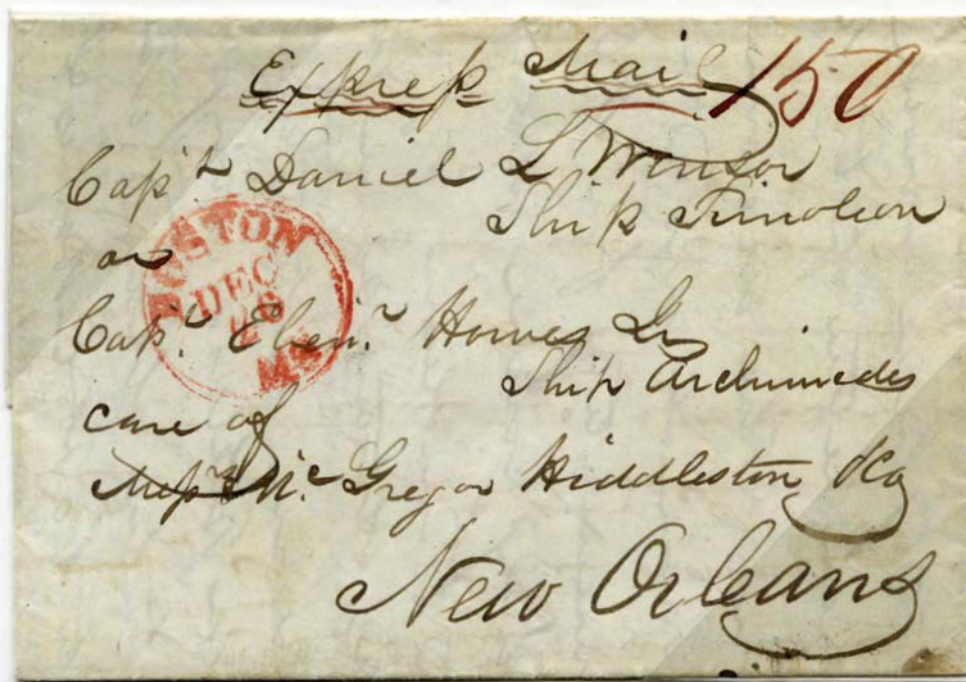 Express Mail 150
Capt Daniel L Winsor
Ship Timoleon
or
BOSTON
DEC
Ms
Capt. Eben.r Howes Jr
Ship Archimedes
care of
Messrs Mc Gregor Hiddleston & Co
New Orleans